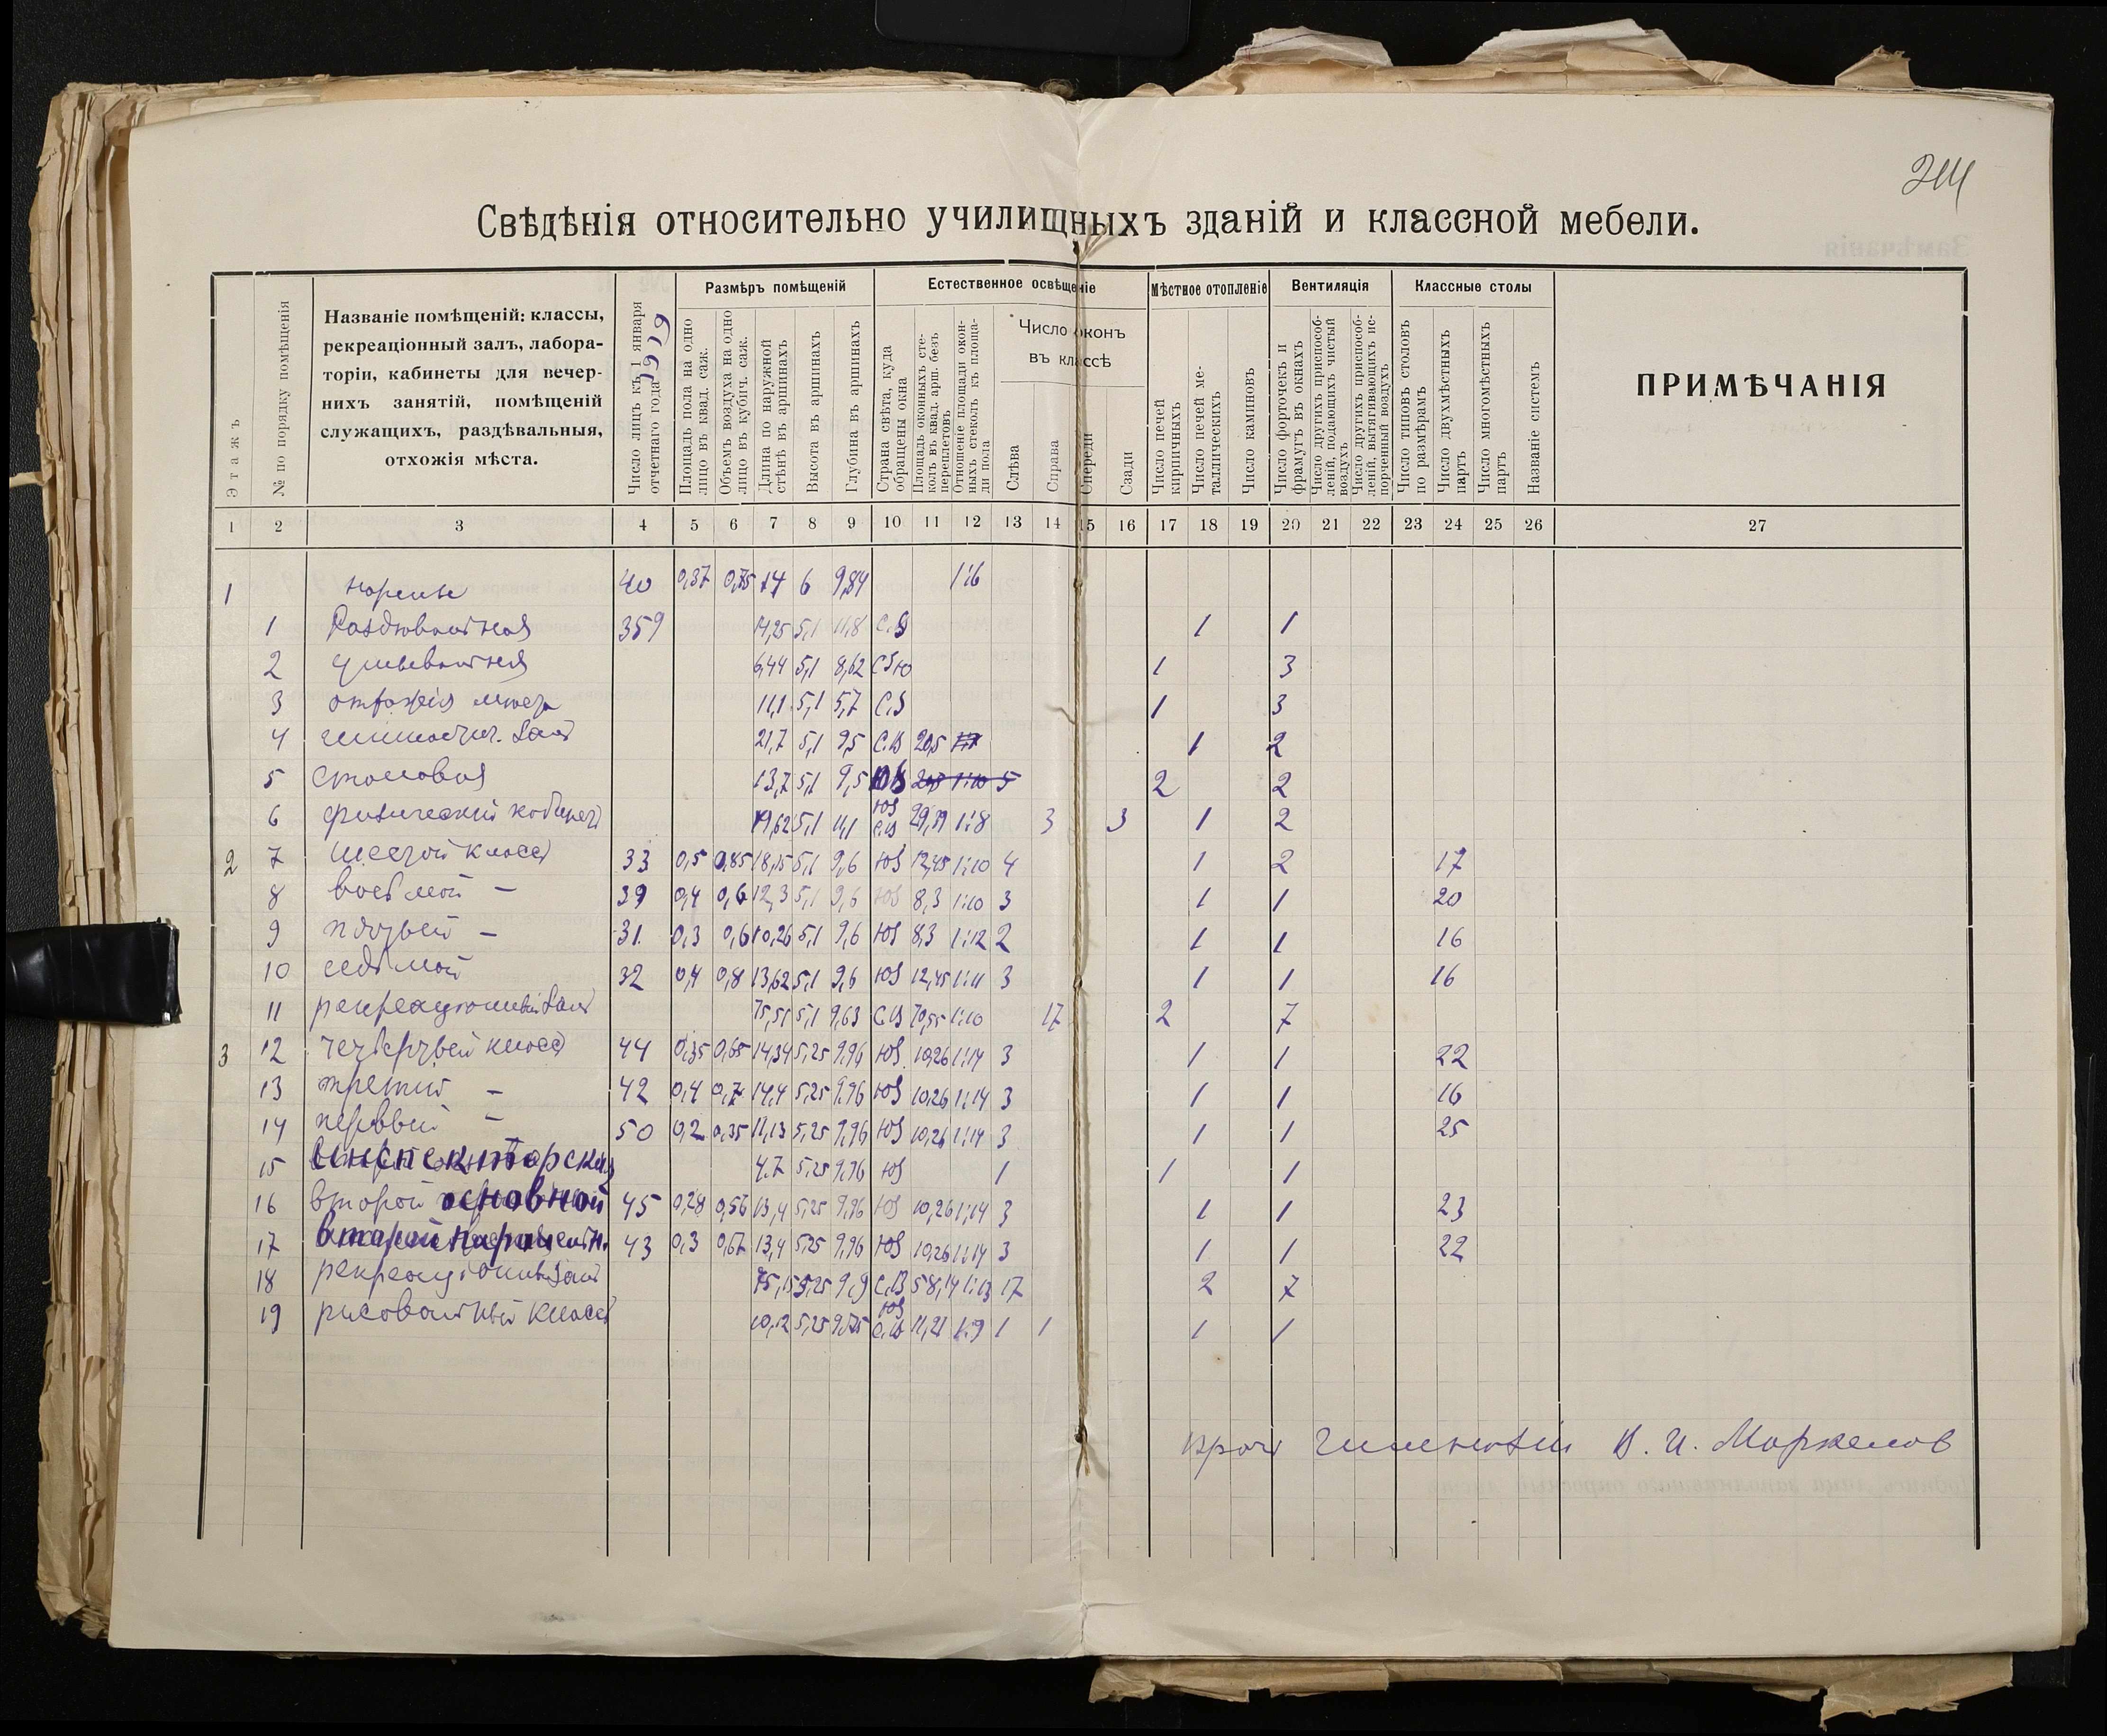 Свѣдѣнія относительно училищныхъ зданій и классной мебели.
Этажъ
№ по порядку помѣщенія
Названіе помѣщеній: классы,
рекреаціонный залъ, лабора-
торіи, кабинеты для вечер-
нихъ занятій, помѣщеній
служащихъ, раздѣвальныя,
отхожія мѣста.
Число лицъ къ 1 января
отчетнаго года 1919
Размѣръ помѣщеній
Площадь пола на одно
лицо въ квад. саж.
Объемъ воздуха на одно
лицо въ кубич. саж.
Длина по наружной
стѣнѣ въ аршинахъ
Высота въ аршинахъ
Глубина въ аршинахъ
Естественное освѣщеніе
Страна свѣта, куда
обращены окна
Площадь оконныхъ сте-
колъ въ квад. арш. безъ
переплетовъ
Отношеніе площади окон-
ныхъ стеколъ къ площа-
ди пола
Число оконъ
въ классѣ
Слѣва
Справа
Спереди
Сзади
Мѣстное отопленіе
Число печей
кирпичныхъ
Число печей ме-
таллическихъ
Число каминовъ
Вентиляція
Число форточекъ и
фрамугъ въ окнахъ
Число другихъ приспособ-
леній, подающихъ чистый
воздухъ
Число другихъ приспособ-
леній, вытягивающихъ ис-
порченный воздухъ
Классные столы
Число типовъ столовъ
по размѣрамъ
Число двухмѣстныхъ
партъ
Число многомѣстныхъ
партъ
Названіе системъ
ПРИМѢЧАНІЯ
1 2 3 4 5 6 7 8 9 10 11 12 13 14 15 16 17 18 19 20 21 22 23 24 25 26 27
1 40 0,37 0,75 14 6 9,84 1:6
1 Раздѣвальная 359 14,25 5,1 11,8 С.В 1 1
2 умывальная 6,44 5,1 8,62 1 3
3 отхожія мѣста 11,1 5,1 5,7 1 3
4 гимнастич. залъ 21,7 5,1 9,5 С.В 20,5 1 2
5 столовая 13,7 5,1 9,5 5 2 2
6 физический кабинетъ 19,62 5,1 11,1 ЮЗ С.В 29,39 1:8 3 3 1 2
2 7 шестой классъ 33 0,5 0,85 18,15 5,1 9,6 ЮЗ 12,45 1:10 4 1 2 17
8 восьмой – 39 0,4 0,6 12,3 5,1 9,6 ЮЗ 8,3 1:10 3 1 1 20
9 пятый – 31 0,3 0,6 10,26 5,1 9,6 ЮЗ 8,3 1:12 2 1 1 16
10 седьмой 32 0,4 0,8 13,62 5,1 9,6 ЮЗ 12,45 1:11 3 1 1 16
11 рекреаціонный залъ 75,51 5,1 9,63 С.В 70,55 1:10 17 2 7
3 12 четвертый классъ 44 0,35 0,65 14,34 5,25 9,96 ЮЗ 10,26 1:14 3 1 1 22
13 третий – 42 0,4 0,7 14,4 5,25 9,96 ЮЗ 10,26 1:14 3 1 1 16
14 первый – 50 0,2 0,35 11,13 5,25 9,96 ЮЗ 10,26 1:14 3 1 1 25
15 инспекторская 4,7 5,25 9,96 ЮЗ 1 1 1
16 второй основной 45 0,28 0,56 13,4 5,25 9,96 ЮЗ 10,26 1:14 3 1 1 23
17 второй параллельн. 43 0,3 0,67 13,4 5,25 9,96 ЮЗ 10,26 1:14 3 1 1 22
18 рекреаціонный залъ 75,15 5,25 9,9 С.В 58,14 1:13 17 2 7
19 рисовальный классъ 10,12 5,25 9,75 ЮЗ С.В 11,21 1:9 1 1 1 1
врачъ гимназіи В. И. Маркелов